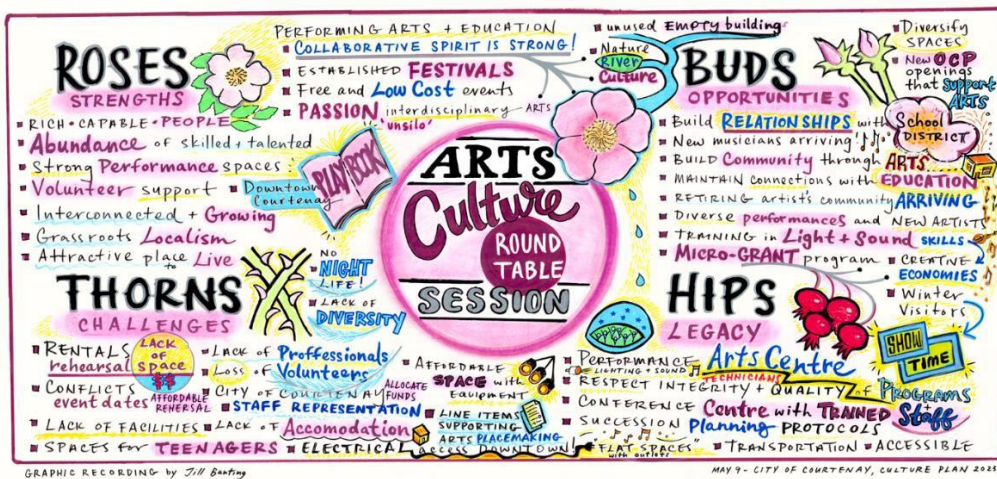 ROSES
STRENGTHS
RICH • CAPABLE • PEOPLE
Abundance of skilled + talented
Strong Performance spaces
Volunteer support
Downtown
Courtenay
PLAYBOOK
Interconnected + Growing
Grassroots Localism
Attractive place to Live
PERFORMING ARTS + EDUCATION
COLLABORATIVE SPIRIT IS STRONG!
ESTABLISHED FESTIVALS
Free and Low Cost events
PASSION, interdisciplinary - ARTS
'unsilo'
ARTS
Culture
ROUND
TABLE
SESSION
unused EMPTY building
Nature
River
Culture
BUDS
OPPORTUNITIES
Diversify
SPACES
New OCP
openings
that Support
ARTS
Build RELATIONSHIPS with
School
DISTRICT
New musicians arriving
BUILD Community through ARTS
MAINTAIN connections with EDUCATION
RETIRING artists community ARRIVING
Diverse performances and NEW ARTISTS
TRAINING in Light + Sound SKILLS
MICRO-GRANT program
CREATIVE
ECONOMIES
Winter
Visitors
THORNS
CHALLENGES
NO
NIGHT
LIFE!
LACK OF
DIVERSITY
RENTALS
rehearsal
LACK
OF
space
$$
CONFLICTS
event dates
AFFORDABLE
REHERSAL
LACK OF FACILITIES
SPACES for TEENAGERS
LACK of Proffessionals
Loss of Volunteers
CITY OF COURTENAY
ALLOCATE
FUNDS
STAFF REPRESENTATION
LACK OF Accomodation
ELECTRICAL access DOWNTOWN!
AFFORDABLE
SPACE with
EQUIPMENT
LINE ITEMS
SUPPORTING
ARTS PLACEMAKING
HIPS
LEGACY
SHOW
TIME
PERFORMANCE Arts Centre
LIGHTING + SOUND
TECHNICIANS
RESPECT INTEGRITY + QUALITY of PROGRAMS
+ Staff
CONFERENCE Centre with TRAINED
SUCCESSION Planning PROTOCOLS
FLAT SPACES
with outlets
TRANSPORTATION
ACCESSIBLE
GRAPHIC RECORDING by Jill Banting
MAY 9 - CITY OF COURTENAY, CULTURE PLAN 2025